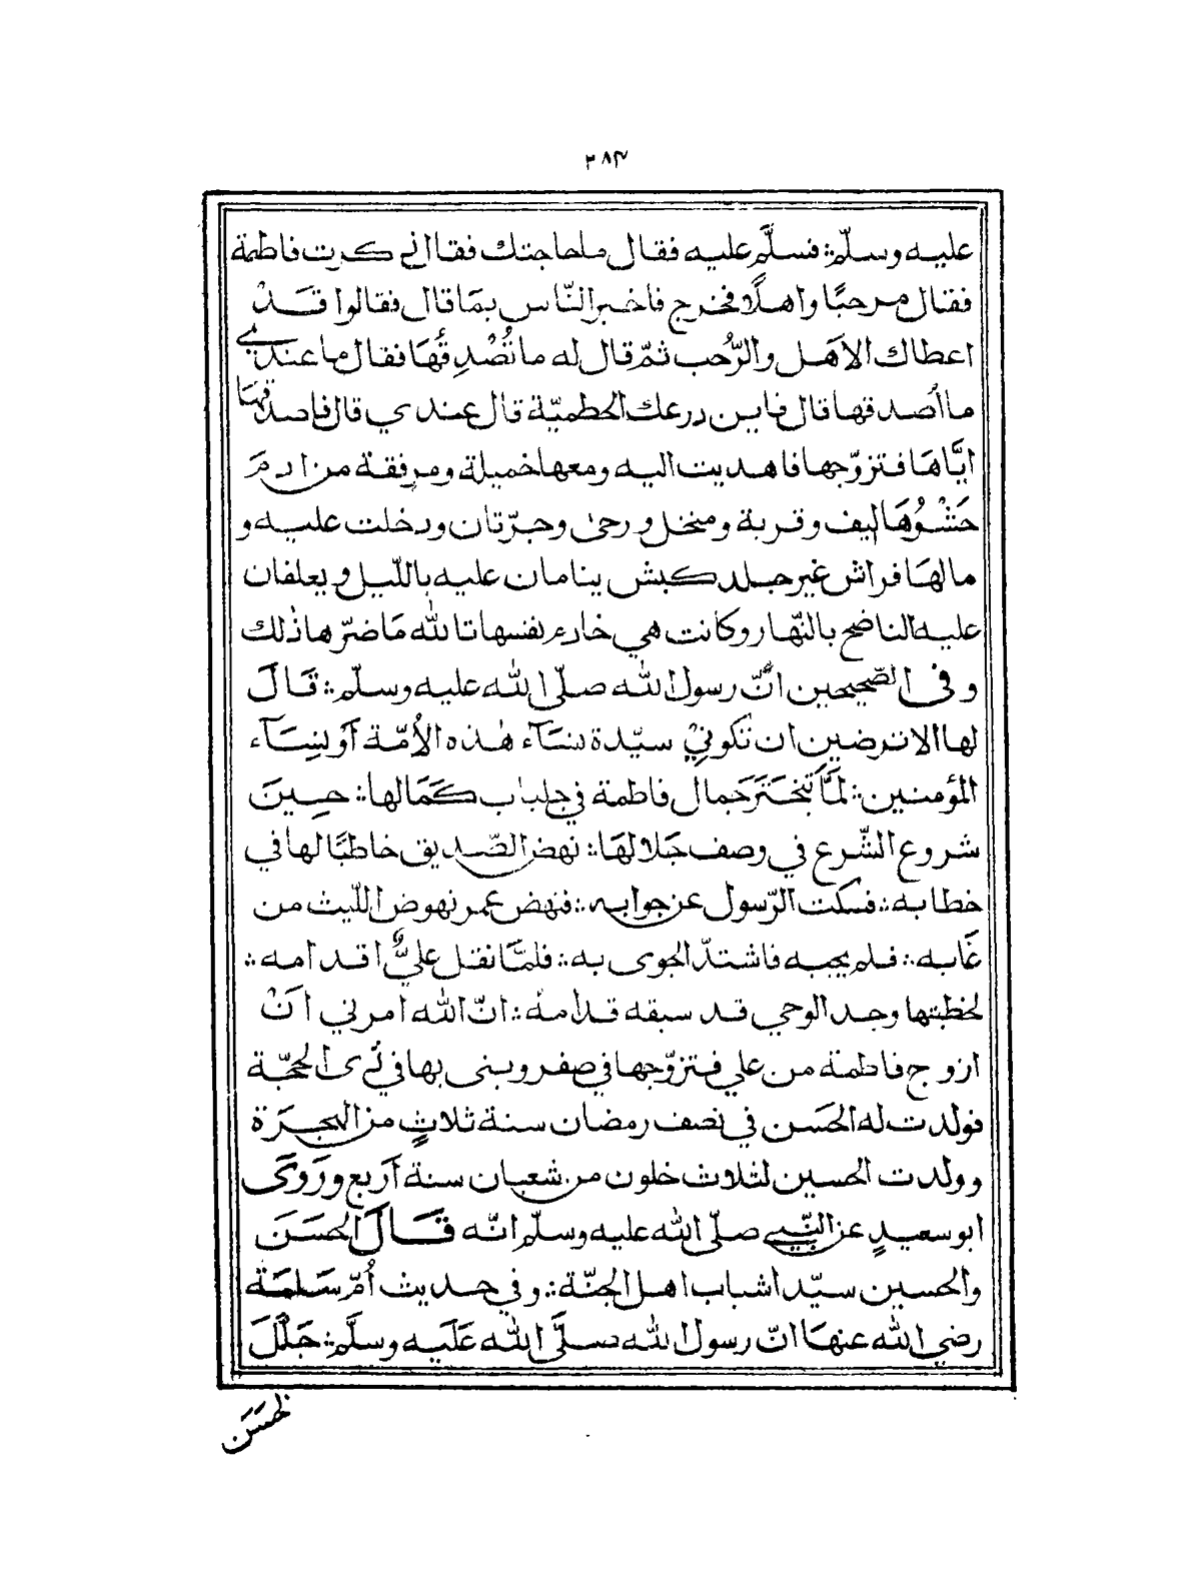 ٢٨٣
عليه وسلّم ؞ فسلَّم عليه فقال ما حاجتك فقال اني ذكرت فاطمة
فقال مرحبًا واهلًا فخرج فاخبر النّاس بمَا قال فقالوا قَدْ
اعطاك الاَهل والرُّحب ثمّ قال له ما تُصْدِقُهَا فقال ما عندي
ما اُصدقها قال فاين درعك الحطميّة قال عندي قال فاصدقهَا
ايَّاهَا فتزوّجها فاهديت اليه ومعها خميلة ومرفقة من ادمَ
حَشْوُهَا ليف وقربة ومنخل ورحى وجرّتان ودخلت عليه و
ما لهَا فراش غير جلد كبش ينامان عليه باللّيل ويعلفان
عليه الناضح بالنّهار وكانت هي خادم نفسها تالله مَا ضرّها ذلك
وفي الصّحيحين انَّ رسول الله صلّى الله عليه وسلّم ؞ قَالَ
لها الا ترضين ان تكوني سيّدة نسَآء هٰذه الاُمّة اَو نِسَآء
المؤمنين ؞ لمَّا تَبَخْتَرَ جَمال فاطمة في جلباب كَمَالها ؞ حِينَ
شروع الشّرع في وصف جَلالهَا ؞ نهض الصّديق خاطبًا لها في
خطابه ؞ فسكت الرّسول عن جوابه ؞ فنهض عمر نهوض اللّيث من
غَابه ؞ فلم يجبه فاشتدّ الجوى به ؞ فلمَّا نقل عليٌّ اقدامه ؞
لخطبتها وجد الوحي قد سبقه قدّامه ؞ انّ الله امرني اَنْ
ازوج فاطمة من علي فتزوّجها في صفر وبنى بها في ذى الحجّة
فولدت له الحَسَن في نصف رمضان سنة ثلاثٍ من الهجرَة
وولدت الحسين لثلاث خلون من شعبان سنة اَربع ورَوَى
ابو سعيدٍ عن النّبي صلّى الله عليه وسلّم انّه قَالَ الحَسَن
والحسين سيّدا شباب اهل الجنّة ؞ وفي حديث اُمّ سَلمَة
رضي الله عنهَا انّ رسول الله صلَّى الله عَلَيه وسلَّم ؞ جَلَّلَ
الحَسَن